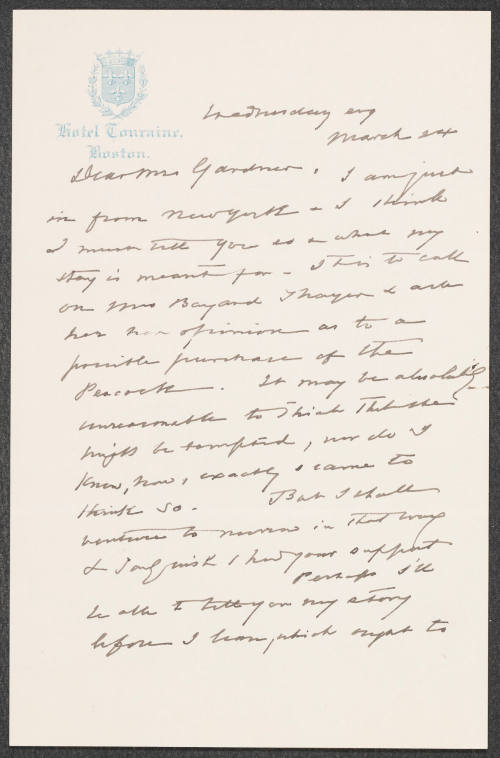 Hotel Touraine.
Boston.
Wednesday evg
March 24
Dear Mrs Gardner. I am just
in from New York & I think
I must tell you so & what my
stay is meant for - It is to call
on Mrs Bayard Thayer & ask
her her opinion as to a
possible purchase of the
Peacock. It may be absolutely
unreasonable to think that she
might be tempted, nor do I
know, how, exactly I came to
think so. But I shall
venture to in that way
& I only wish I had your support
Perhaps I'll
be able to tell you my story
before I leave, which ought to